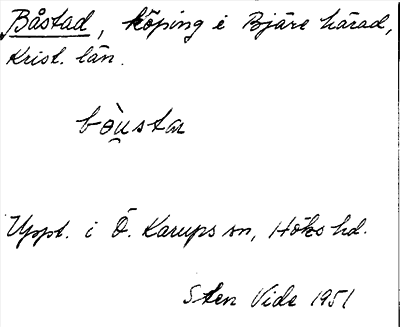 Båstad, köping i Bjäre härad,
Krist. län.
bòu̯sta
Uppt. i Ö. Karups sn, Höks hd.
Sten Vide 1951